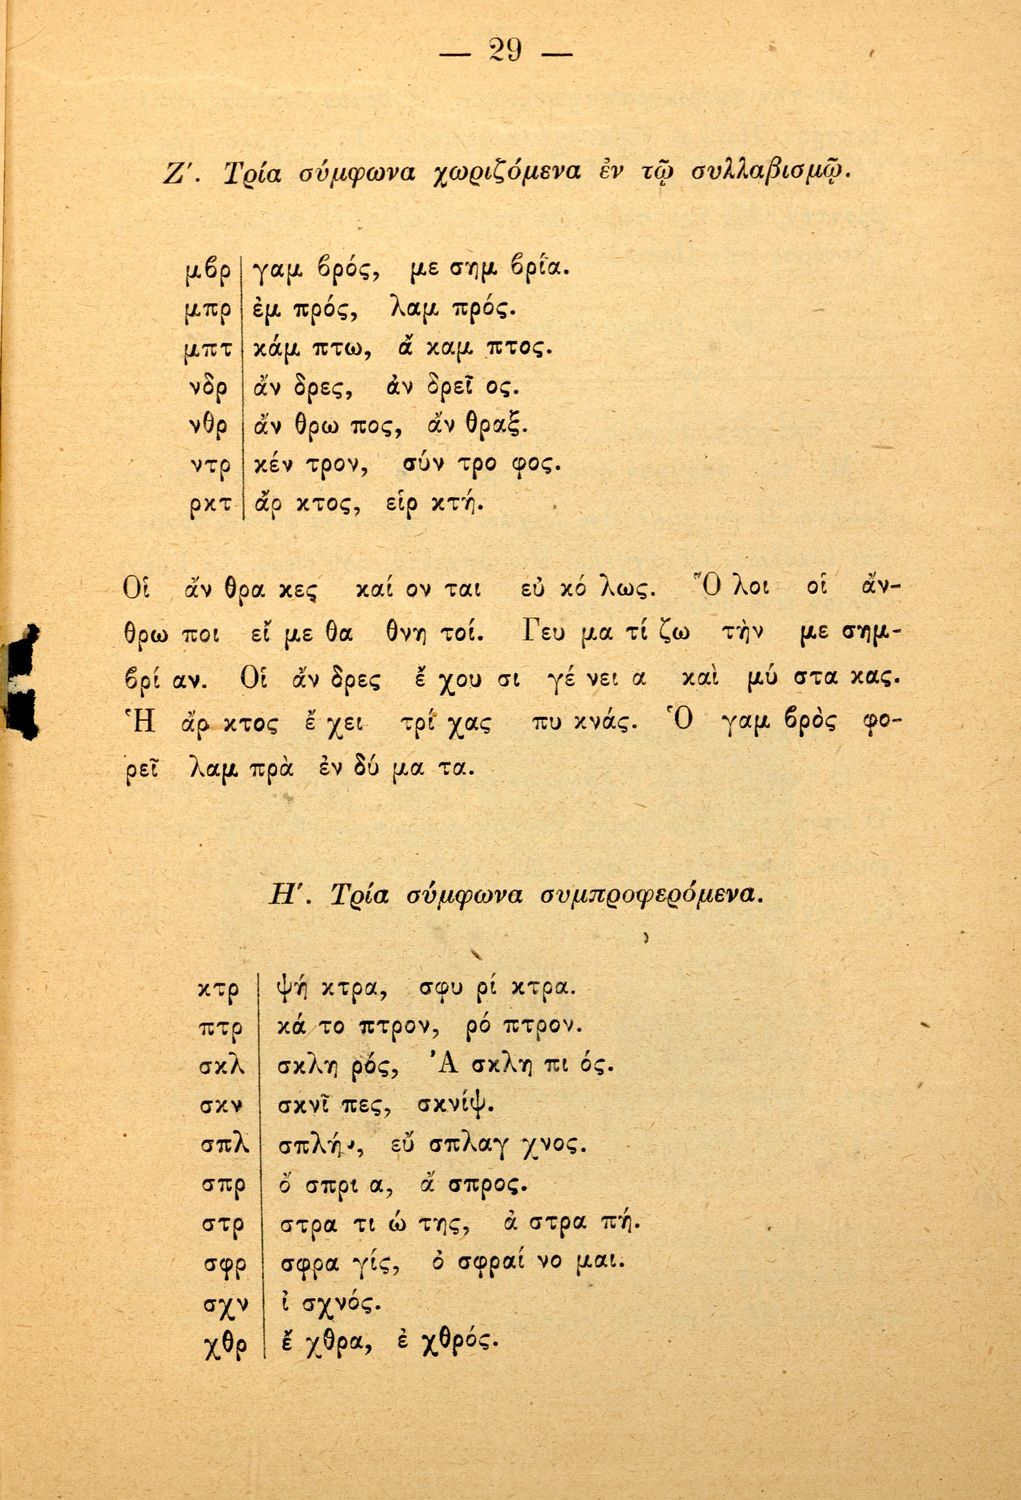 — 29 —
Ζʹ. Τρία σύμφωνα χωριζόμενα ἐν τῷ συλλαβισμῷ.
μβρ γαμ βρός, με σημ βρία.
μπρ ἐμ πρός, λαμ πρός.
μπτ κάμ πτω, ἄ καμ πτος.
νδρ ἄν δρες, ἀν δρεῖ ος.
νθρ ἄν θρω πος, ἄν θραξ.
ντρ κέν τρον, σύν τρο φος.
ρκτ ἄρ κτος, εἱρ κτή.
Οἱ ἄν θρα κες καί ον ται εὐ κό λως. Ὅ λοι οἱ ἄν-
θρω ποι εἴ με θα θνη τοί. Γευ μα τί ζω τὴν με σημ-
βρί αν. Οἱ ἄν δρες ἔ χου σι γέ νει α καὶ μύ στα κας.
Ἡ ἄρ κτος ἔ χει τρί χας πυ κνάς. Ὁ γαμ βρὸς φο-
ρεῖ λαμ πρὰ ἐν δύ μα τα.
Ηʹ. Τρία σύμφωνα συμπροφερόμενα.
κτρ ψή κτρα, σφυ ρί κτρα.
πτρ κά το πτρον, ρό πτρον.
σκλ σκλη ρός, Ἀ σκλη πι ός.
σκν σκνῖ πες, σκνίψ.
σπλ σπλήν, εὔ σπλαγ χνος.
σπρ ὄ σπρι α, ἄ σπρος.
στρ στρα τι ώ της, ἀ στρα πή.
σφρ σφρα γίς, ὀ σφραί νο μαι.
σχν ἰ σχνός.
χθρ ἔ χθρα, ἐ χθρός.